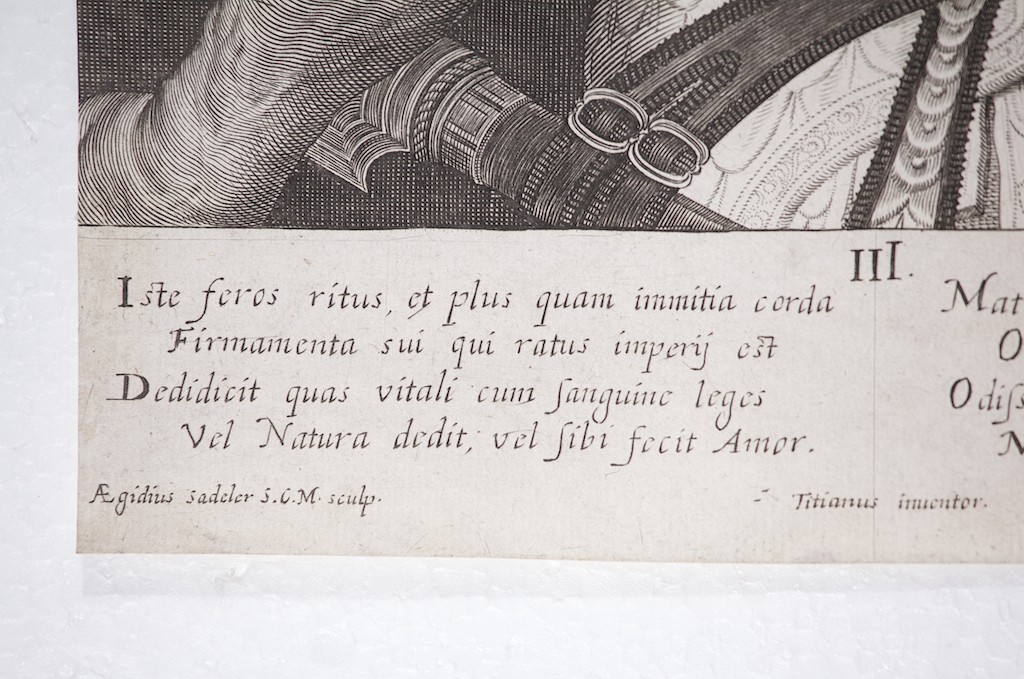 III.
Iste feros ritus, et plus quam immitia corda
Firmamenta sui qui ratus imperij est
Dedidicit quas vitali cum sanguine leges
Vel Natura dedit, vel sibi fecit Amor.
Mat
O
Odiſs
N
Ægidius Sadeler S.C.M. sculp.
Titianus inuentor.